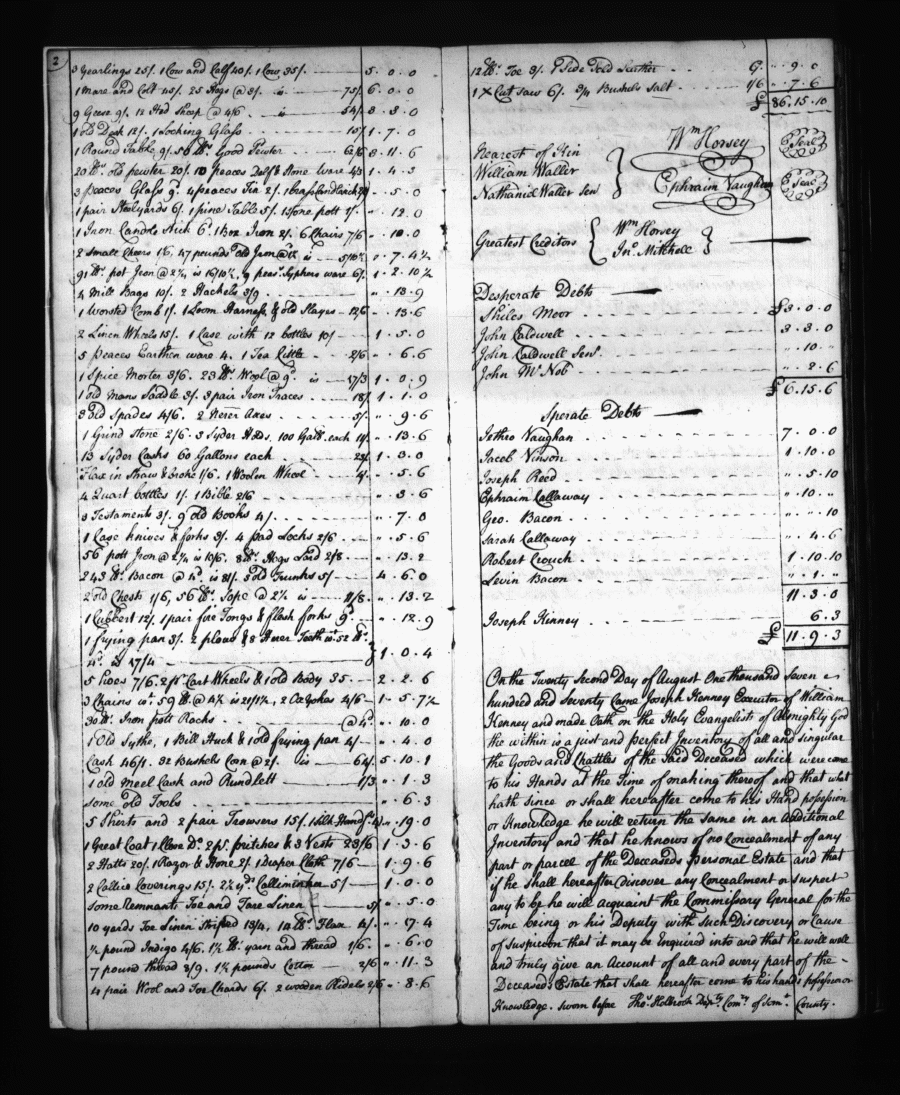 2
3 Yearlings 25/. 1 Cow and Calf 40/. 1 Cow 35/. 5 . 0 . 0
1 Mare and Colt 45/. 25 Hogs @ 3/. is 75/. 6 . 0 . 0
9 Geese 9/. 12 Hed Sheep @ 4/6 is 54/. 3 . 3 . 0
1 old Desk 12/. 1 Looking Glass 15/. 1 . 7 . 0
1 Round Table 9/. 50 lb. Good Pewter 62/6 3 . 11 . 6
20 lbs. old pewter 20/. 10 peaces Delf & Stone Ware 4/3 1 . 4 . 3
3 peaces Glass 9d. 4 peaces Tin 2/. 1 Brass Candlestick " . 5 . 0
1 pair Steelyards 6/. 1 pine Table 5/. 1 Stone pott 1/. " . 12 . 0
1 Iron Candle Stick 6d. 1 Box Iron 2/. 6 Chairs 7/6 " . 10 . 0
2 Small Cheers 1/6, 47 pounds old Iron @ is 5/10½ 0 . 7 . 4½
91 lbs. pot Iron @ 2¼ is 16/10½. 9 peas. Syphers ware 6/. 1 . 2 . 10½
4 Mill Bags 10/. 2 Hachels 3/9 " . 13 . 9
1 Worsted Comb 1/. 1 Loom Harness & old Slayes 12/6 " . 13 . 6
2 Linen Wheels 15/. 1 Case with 12 bottles 10/ 1 . 5 . 0
5 peaces Earthen ware 4. 1 Tea Kittle 2/6 " . 6 . 6
1 Spice Morter 3/6. 23 lbs. Wool @ 9d. is 17/3 1 . 0 . 9
1 old Mans Saddle 3/. 3 pair Iron Traces 18/. 1 . 1 . 0
3 old Spades 4/6. 2 Nerer Axes 5/. " . 9 . 6
1 Grind Stone 2/6. 3 Syder Hdds. 100 Galls. each 11/. " . 13 . 6
13 Syder Casks 60 Gallons each 23/. 1 . 3 . 0
Flax in Straw & broke 1/6. 1 Woolen Wheel 4/. " . 5 . 6
4 Quart bottles 1/. 1 Bible 2/6 " . 3 . 6
3 Testaments 3/. 9 old Books 4/. " . 7 . 0
1 Case knives & forks 3/. 4 pad Locks 2/6 " . 5 . 6
56 pott Iron @ 2¼ is 10/6. 8 lbs. Hogs Lard 2/8 " . 13 . 2
243 lbs. Bacon @ 4d. is 81/. 3 old Trunks 5/ 4 . 6 . 0
2 old Chests 1/6, 56 lbs. Sope @ 2½ is 11/8. " . 13 . 2
1 Cubbert 12/. 1 pair fire Tongs & flesh forks 9d. " . 12 . 9
1 frying pan 3/. 2 plows & 8 Harer Teeth wt. 52 lbs. }
4d. is 17/4 } 1 . 0 . 4
5 Hoes 7/6. 2 pr. Cart Wheels & 1 old Body 35 2 . 2 . 6
3 Chains wt. 59 lb. @ 4½ is 21/1½, 2 Ox Yokes 4/6 1 . 5 . 7½
30 lbs. Iron pott Racks @ 4d. " . 10 . 0
1 Old Sythe, 1 Bill Huck & 1 old frying pan 4/ " . 4 . 0
Cash 46/1. 32 Bushels Corn @ 2/. is 64/. 5 . 10 . 1
1 old Meel Cask and Rundlett 1/3 " . 1 . 3
some old Tools " . 6 . 3
5 Shirts and 2 pair Trowsers 15/. 1 Silk Handf. 4/. " . 19 . 0
1 Great Coat 1 Close Do. 2 pr. britches & 3 Vests 23/6 1 . 3 . 6
2 Hatts 20/. 1 Razor & Hone 2/. 1 Draper Cloth 7/6 1 . 9 . 6
2 Callico Coverings 15/. 2½ yds. Calliminker 5/ 1 . 0 . 0
some Remnants Toe and Fare Linen 5/ " . 5 . 0
10 yards Toe Linen Strifed 13/4, 12 lbs. Flax 4/. " . 17 . 4
½ pound Indigo 4/6. 1½ lb. yarn and thread 1/6. " . 6 . 0
7 pound thread 8/9. 1½ pounds Cotton 2/6 " . 11 . 3
4 pair Wool and Toe Chards 6/. 2 wooden Ridels 2/6 " . 8 . 6
12 lbs. Toe 3/. 1 Side Told Leather 6/. " . 9 . 0
1 X Cut Saw 6/. 3/4 Bushels Salt 1/6 " . 7 . 6
£ 86 . 15 . 10
Nearest of Kin
William Waller
Nathaniel Waller Senr
}
Wm Horsey Seal
Ephraim Vaughan Seal
Greatest Creditors { Wm Horsey
Jno. Mitchell }
Desperate Debts
Shiles Moor £3 . 0 . 0
John Caldwell 3 . 3 . 0
John Caldwell Senr. " . 10 . "
John McNob " . 2 . 6
£ 6 . 15 . 6
Sperate Debts
Jethro Vaughan 7 . 0 . 0
Jacob Vinson 1 . 10 . 0
Joseph Reed " . 5 . 10
Ephraim Callaway " . 10 . "
Geo. Bacon " . " . 10
Sarah Callaway " . 4 . 6
Robert Crouch 1 . 10 . 10
Levin Bacon " . 1 . "
11 . 3 . 0
Joseph Kinney 6 . 3
£ 11 . 9 . 3
On the Twenty Second Day of August One thousand Seven
hundred and Seventy Came Joseph Kenney Executor of William
Kenney and made Oath on the Holy Evangelists of Almighty God
the within is a just and perfect Inventory of all and singular
the Goods and Chattles of the said Deceased which were come
to his Hands at the Time of making thereof and that what
hath since or shall hereafter come to his Hand possession
or Knowledge he will return the Same in an Additional
Inventory and that he knows of no Concealment of any
part or parcel of the Deceaseds Personal Estate and that
if he shall hereafter discover any Concealment or suspect
any to be he will acquaint the Commissary General for the
Time being or his Deputy with such Discovery or Cause
of suspicion that it may be inquired into and that he will well
and truly give an Account of all and every part of the
Deceaseds Estate that shall hereafter come to his hands possession or
Knowledge. Sworn before Thos. Holbrook Depty. Comry. of Somt. County.